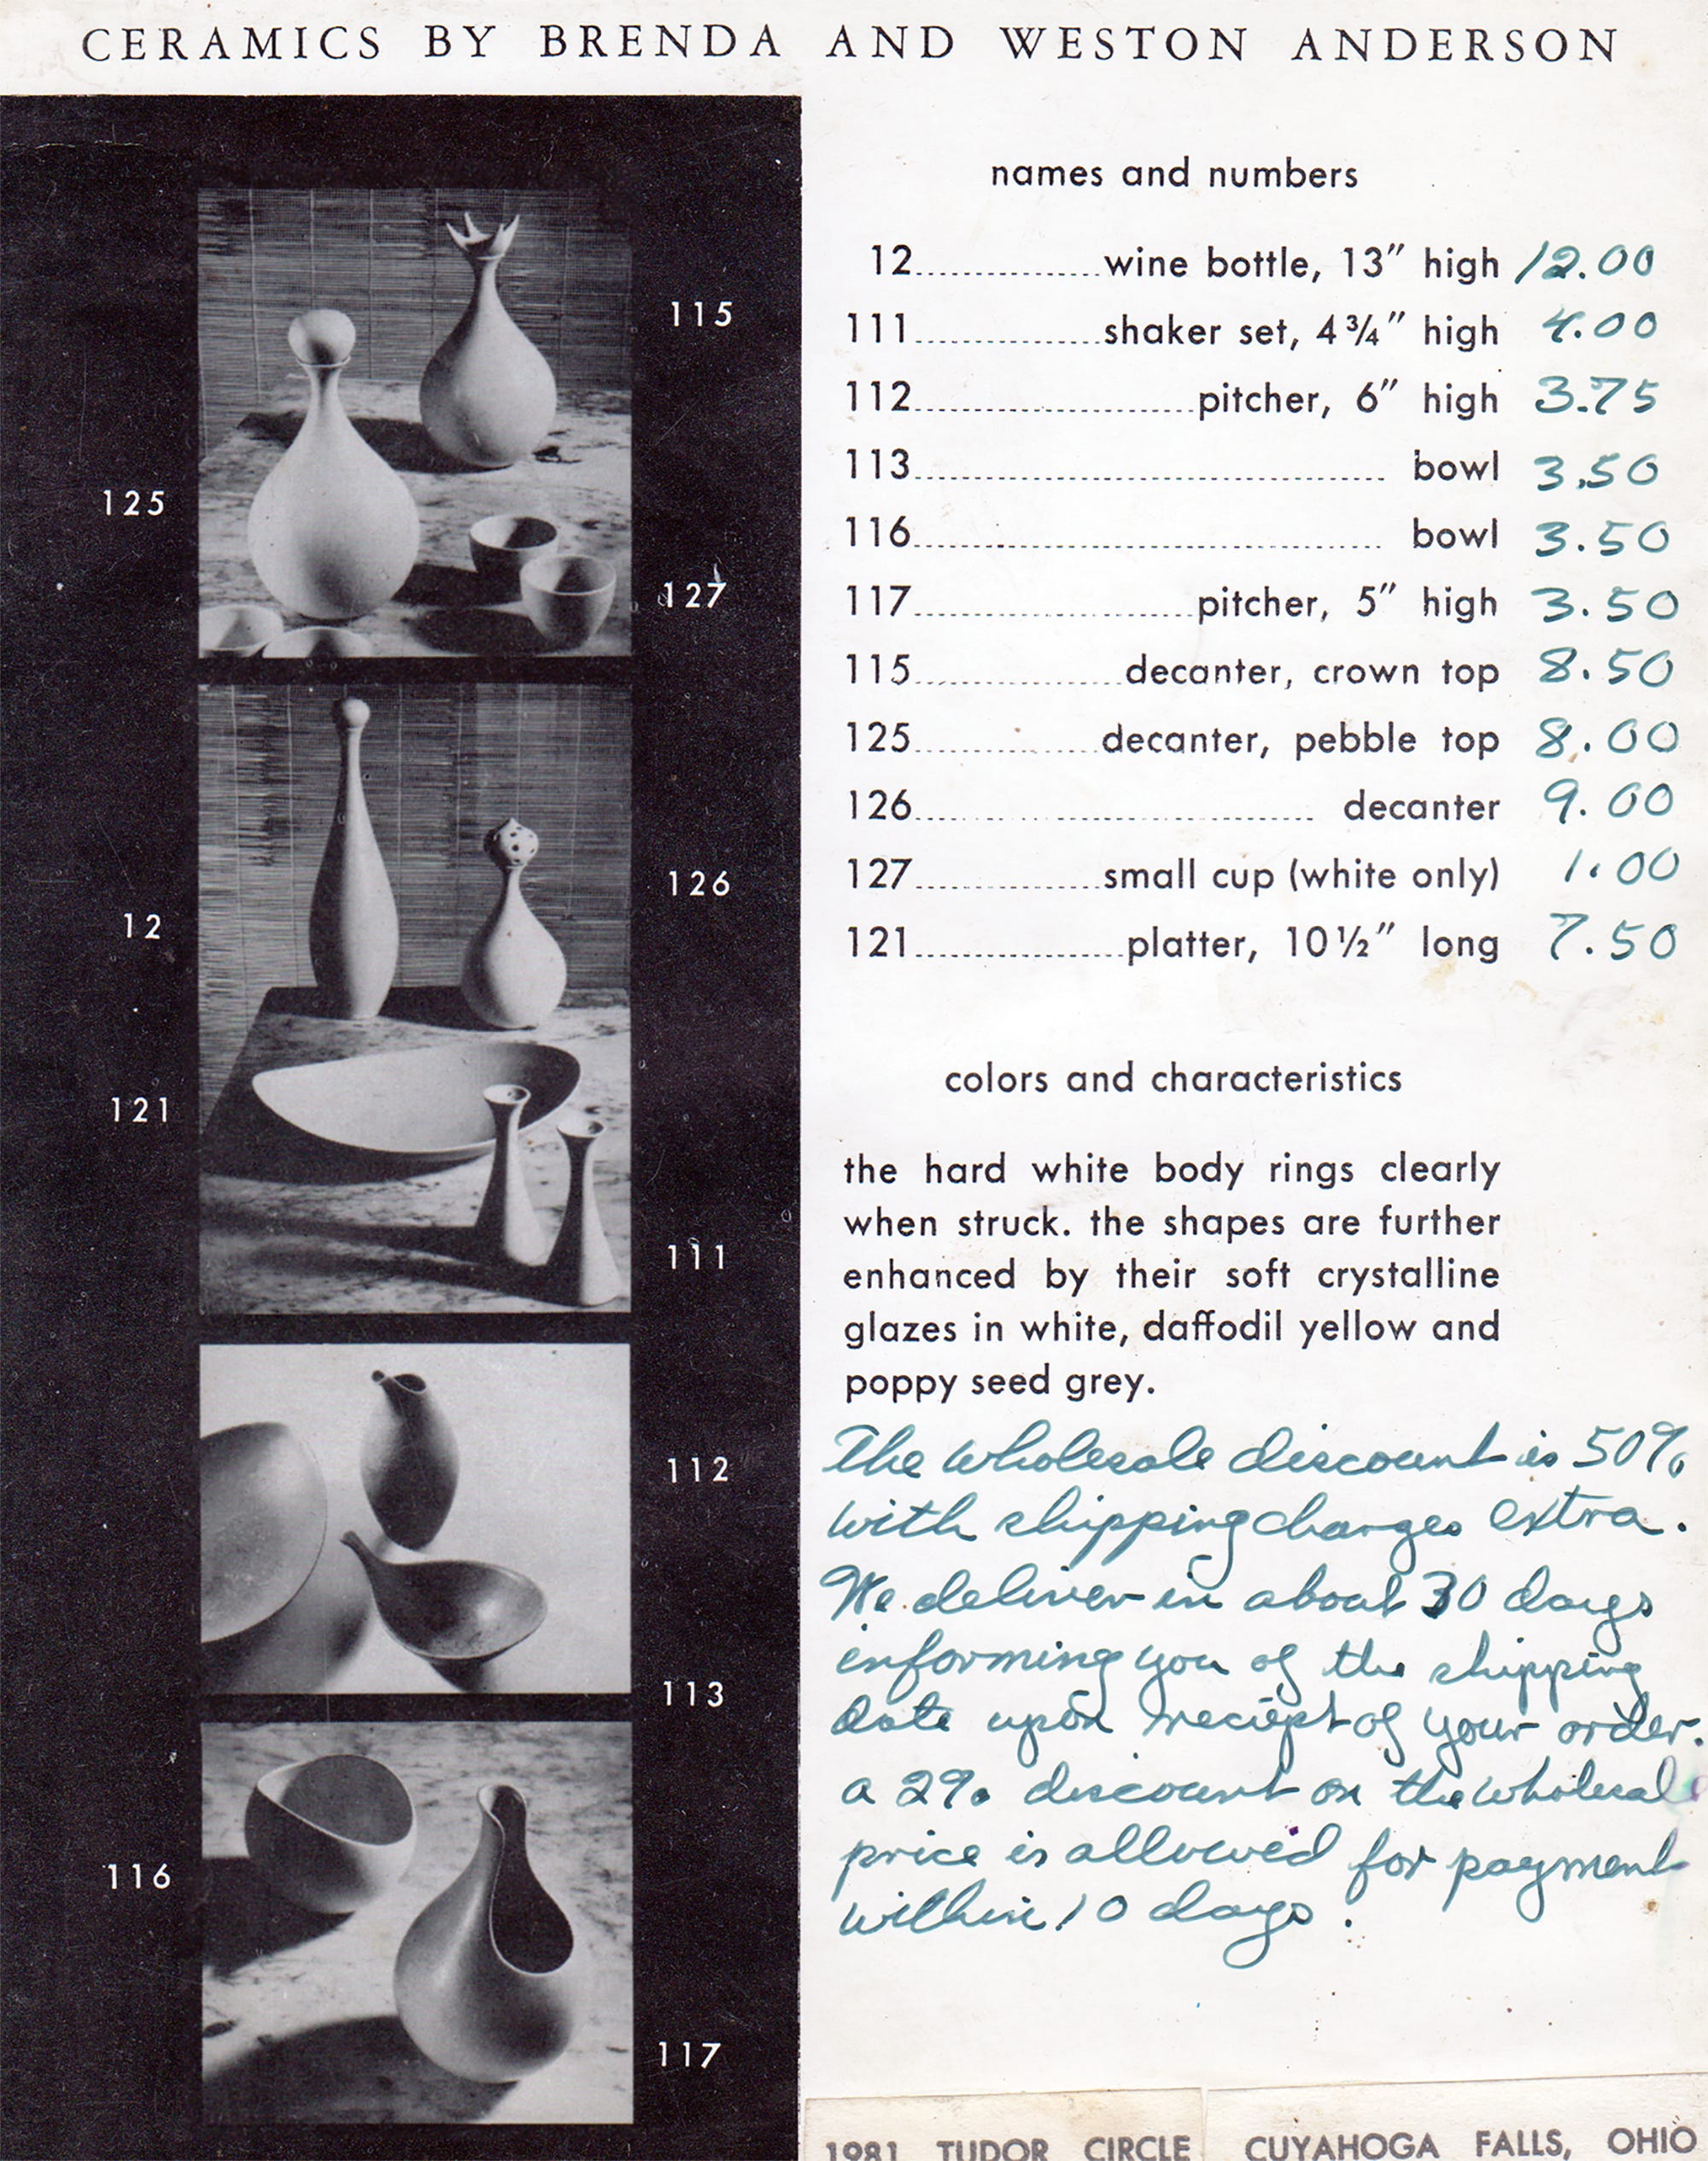 CERAMICS BY BRENDA AND WESTON ANDERSON
115
125
127
126
12
121
111
112
113
116
117
names and numbers
12 wine bottle, 13" high 12.00
111 shaker set, 4 3/4" high 4.00
112 pitcher, 6" high 3.75
113 bowl 3.50
116 bowl 3.50
117 pitcher, 5" high 3.50
115 decanter, crown top 8.50
125 decanter, pebble top 8.00
126 decanter 9.00
127 small cup (white only) 1.00
121 platter, 10 1/2" long 7.50
colors and characteristics
the hard white body rings clearly
when struck. the shapes are further
enhanced by their soft crystalline
glazes in white, daffodil yellow and
poppy seed grey.
The wholesale discount is 50%
with shipping charges extra.
We deliver in about 30 days
informing you of the shipping
date upon reciept of your order.
a 2% discount on the wholesale
price is allowed for payment
within 10 days.
1981 TUDOR CIRCLE CUYAHOGA FALLS, OHIO